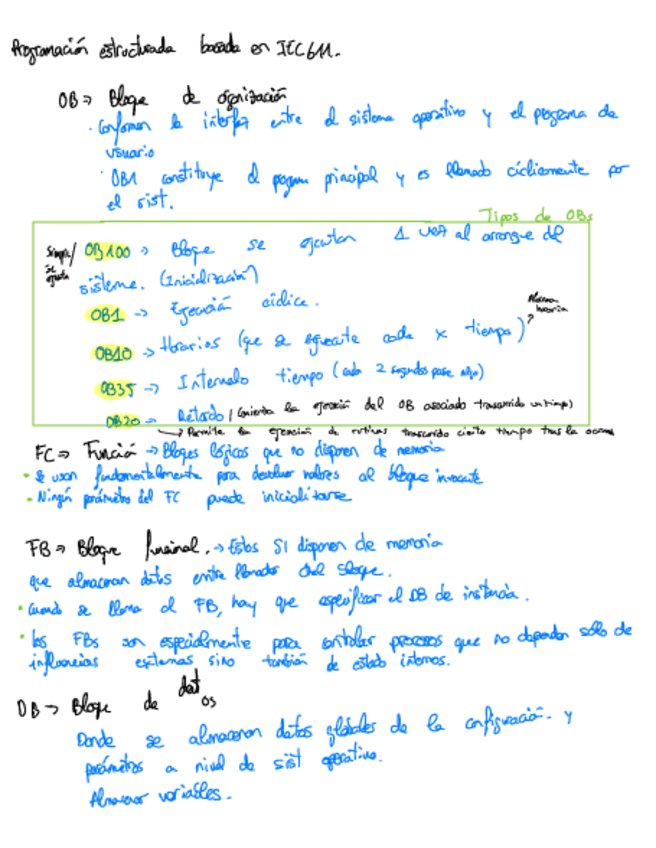 Programación estructurada basada en IEC611.
OB => Bloque de organización
· Conforman la interfaz entre el sistema operativo y el programa de
usuario
· OB1 constituye el program principal y es llamado cíclicamente por
el sist.
Tipos de OBs
Siempre/ OB100 -> Bloque se ejecutan 1 vez al arranque del
se ejecuta
sisteme. (Inicialización)
OB1 -> Ejecución cíclica.
OB10 -> Horarios (que se ejecute cada x tiempo)?
Alarma horaria
OB35 -> Intervalo tiempo (cada 2 segundos pase algo)
OB20 -> Retardo / Comienza la ejecución del OB asociado transcurrido un tiempo)
-> Permite la ejecución de rutinas transcurrido cierto tiempo tras la
FC => Función -> Bloques lógicos que no disponen de memoria
· Se usan fundamentalmente para devolver valores al bloque invocante
· Ningún parámetro del FC puede inicializarse
FB => Bloque funcional. -> Estos SI disponen de memoria
que almacenan datos entre llamadas del bloque.
· Cuando se llama al FB, hay que especificar el DB de instancia.
· Los FBs son especialmente para controlar procesos que no dependen sólo de
influencias externas sino también de estado internos.
DB -> Bloque de datos
Donde se almacenan datos globales de la configuración. y
parámetros a nivel de sist operativo.
Almacenar variables.